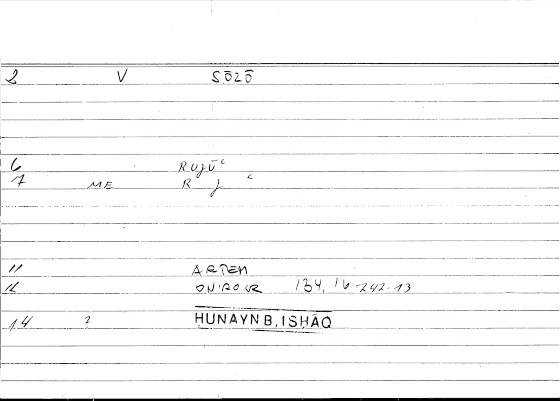 2 V SŌZŌ
6 RUJŪʿ
7 ME R J ʿ
11 ARTEM
12 ONIROCR 134, 16-242.13
14 2 HUNAYN B. ISHAQ